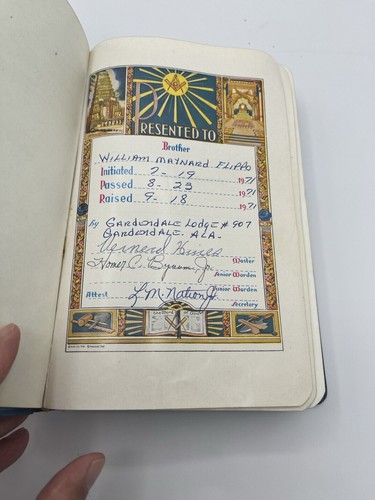 PRESENTED TO
Brother
WILLIAM MAYNARD FLIPPO
Initiated 7-19 1971
Passed 8-23 1971
Raised 9-18 1971
by GARDENDALE LODGE # 907
GARDENDALE, ALA.
Vernerd Hines
Master
Homer C. Bynum Jr.
Senior Warden
Junior Warden
Attest L.M. Nation Jr.
Secretary